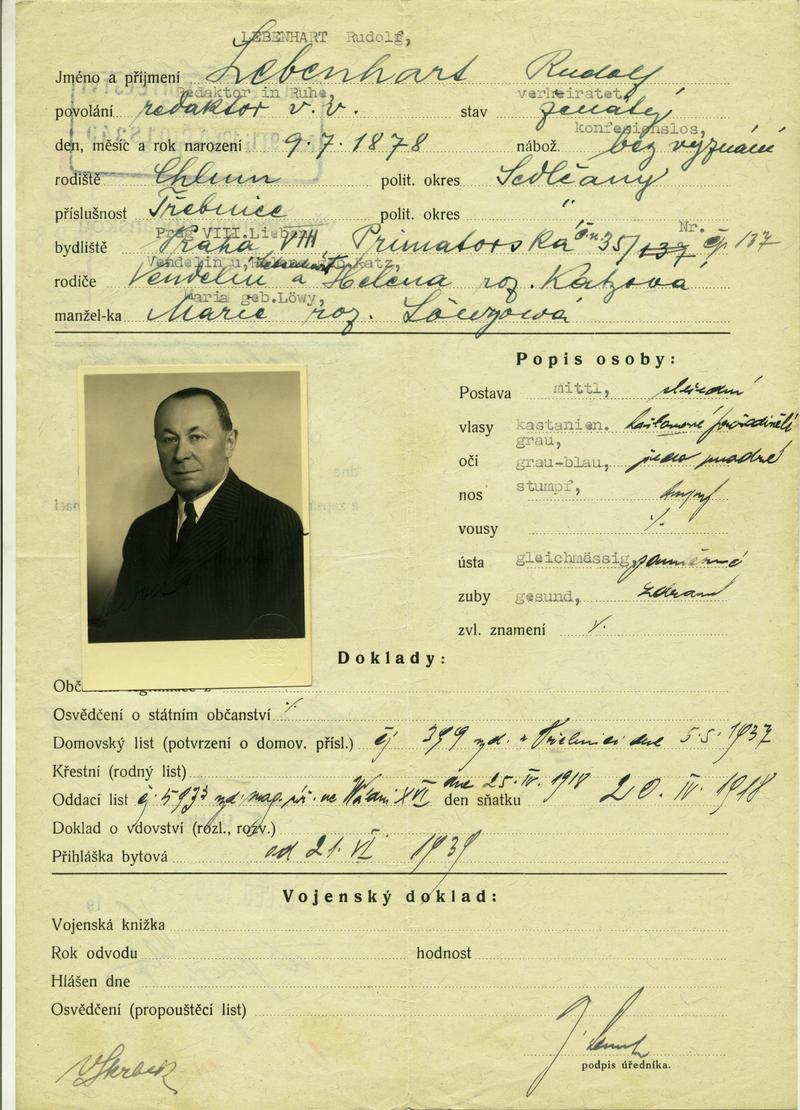 LEBENHART Rudolf,
Jméno a příjmení Lebenhart Rudolf
Redaktor in Ruhe, verheiratet,
povolání redaktor v. v. stav ženatý
konfesionslos,
den, měsíc a rok narození 9. 7. 1878 nábož. bez vyznání
rodiště Chlum polit. okres Sedlčany
příslušnost Třebnice polit. okres "
Prag VIII. Lieben, Nr.
bydliště Praha VIII Primatorská 35/137 čp 137
Vendelin u. Katz,
rodiče Vendelin a Helena roz. Katzová
Maria geb. Löwy,
manžel-ka Marie roz. Löwyová
Popis osoby:
Postava mittl, střední
vlasy kastanien. kaštanové prošedivělé
grau,
oči grau-blau, šedo modré
nos stumpf, tupý
vousy ⁒
ústa gleichmässig, souměrné
zuby gesund, zdravé
zvl. znamení ⁒
Doklady:
Obč
Osvědčení o státním občanství ⁒
Domovský list (potvrzení o domov. přísl.) čj 399 vyd. v Třebnici dne 5. 5. 1937
Křestní (rodný list)
Oddací list vyd. mag. ve Vídni XVI dne 25. IV. 1918 den sňatku 20. IV. 1918
Doklad o vdovství (rozl., rozv.)
Přihláška bytová od 21. VI 1939
Vojenský doklad:
Vojenská knížka
Rok odvodu hodnost
Hlášen dne
Osvědčení (propouštěcí list)
podpis úředníka.